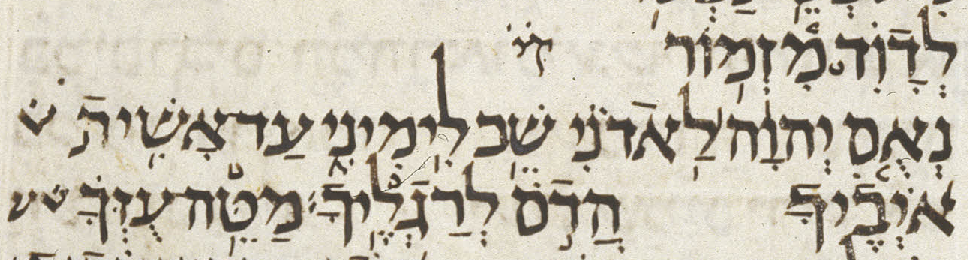 לְדָוִד מִזְמוֹר
נְאֻם יְהוָה לַאדֹנִי שֵׁב לִימִינִי עַד אָשִׁית
אֹיְבֶיךָ הֲדֹם לְרַגְלֶיךָ׃ מַטֵּה עֻזְּךָ